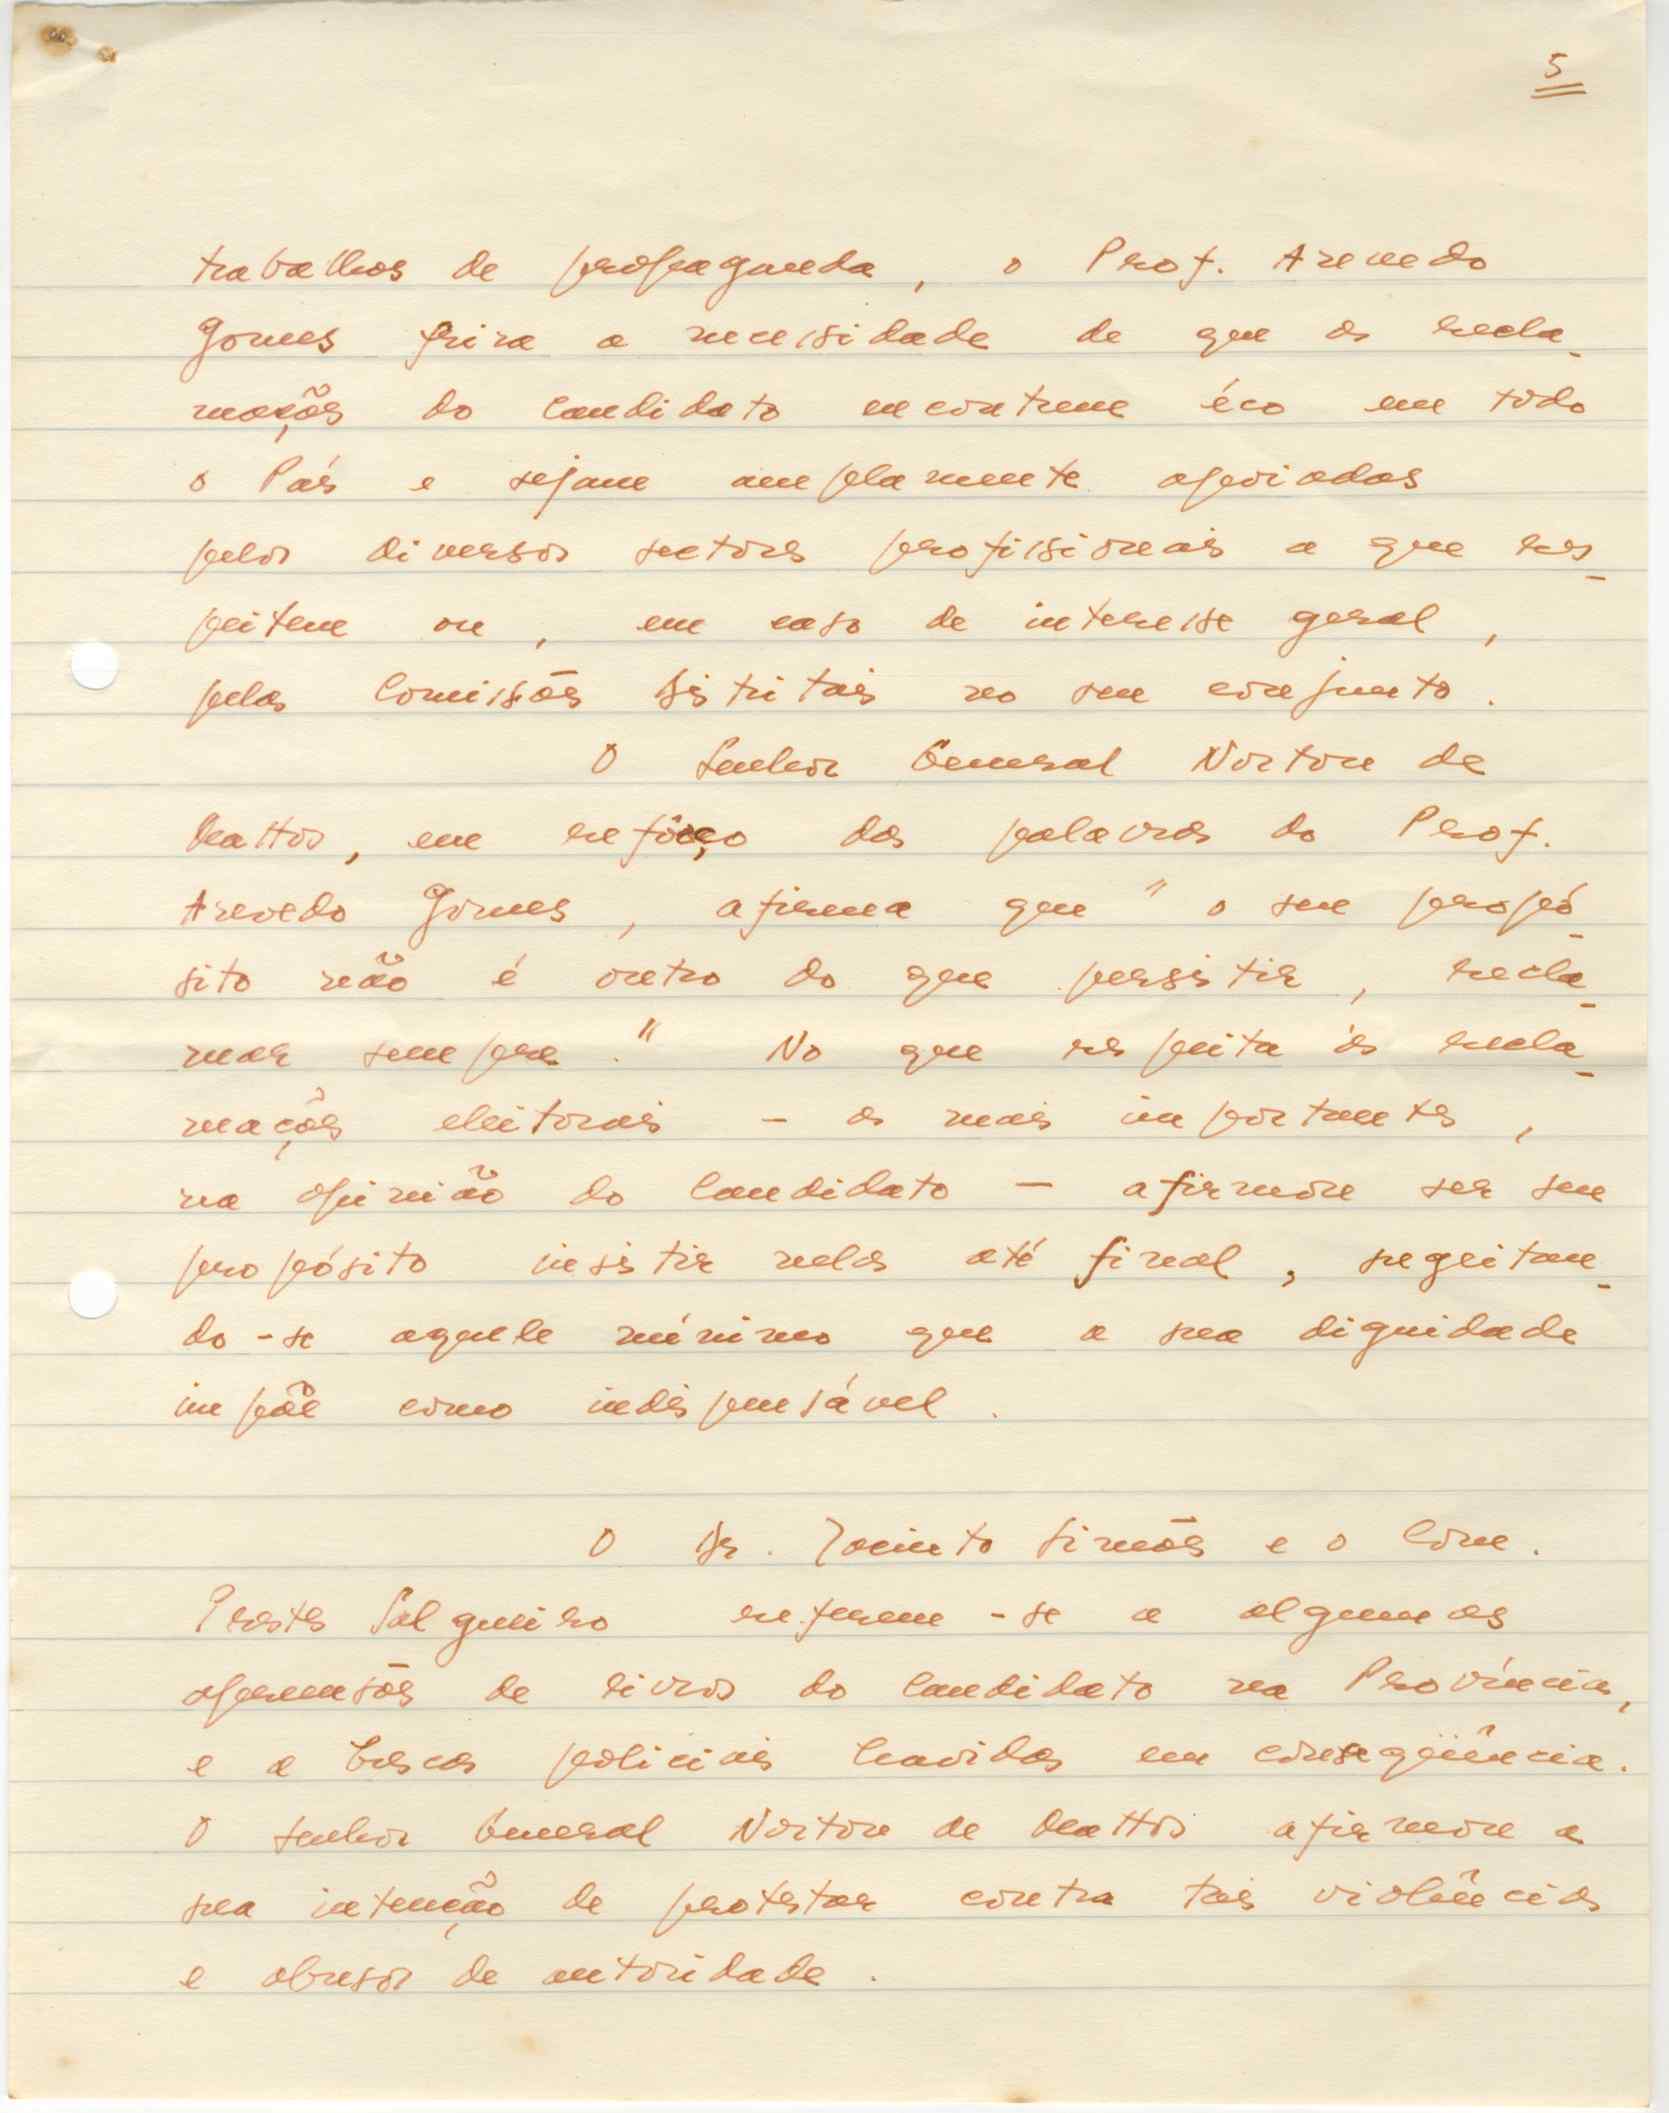 5
trabalhos de propaganda, o Prof. Azevedo
Gomes friza a necessidade de que as recla-
mações do Candidato encontrem éco em todo
o País e sejam amplamente apoiadas
pelos diversos sectores profissionais a que res-
peitem ou, em caso de interesse geral,
pelas Comissões Distritais no seu conjunto.
O Senhor General Norton de
Mattos, em refôrço das palavras do Prof.
Azevedo Gomes, afirma que "o seu propó-
sito não é outro do que persistir, recla-
mar sempre." No que respeita às recla-
mações eleitorais - as mais importantes,
na opinião do Candidato - afirmou ser seu
propósito insistir nelas até final, sugeitan-
do-se aquele mínimo que a sua dignidade
impõe como indispensável.
O Dr. Jacinto Simões e o Com.
Prestes Salgueiro referem-se a algumas
apreensões de livros do Candidato na Província,
e a buscas policiais havidas em conseqüência.
O Senhor General Norton de Mattos afirmou a
sua intenção de protestar contra tais violências
e abusos de autoridade.